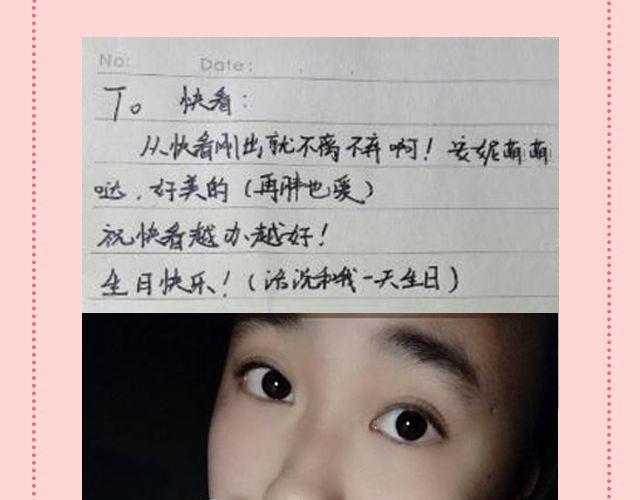 No:   Date:
To 快看:
从快看刚出就不离不弃啊！安妮萌萌
哒，好美的（再胖也爱）
祝快看越办越好！
生日快乐！（话说和我一天生日）